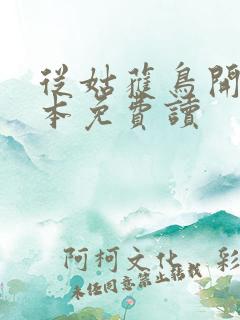 從姑蘿鳥開
本免費讀
阿柯文化 彩
未經同意禁止轉載